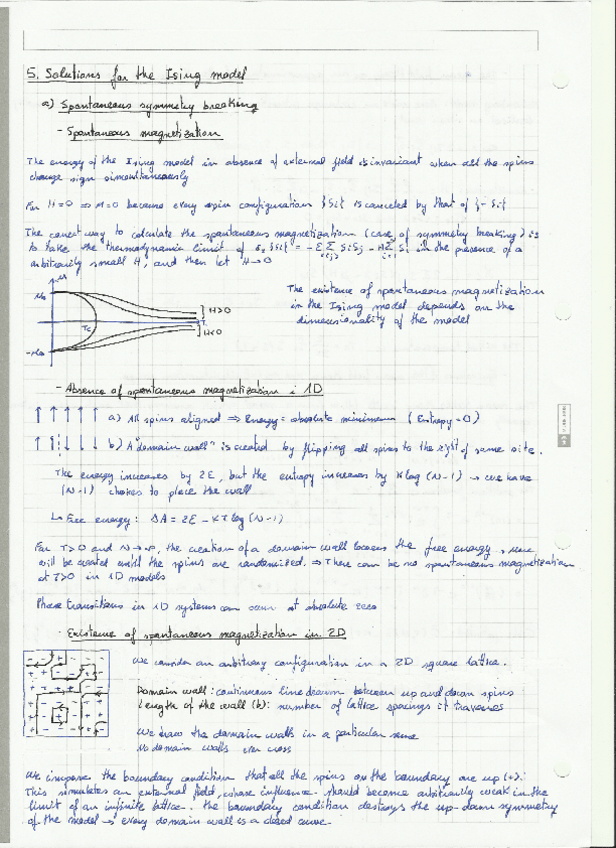 5. Solutions for the Ising model
a) Spontaneous symmetry breaking
- Spontaneous magnetization
The energy of the Ising model in absence of external field is invariant when all the spins
change sign simoultaneously
For H=0 ⇒ M=0 because every spin configuration {Si} is canceled by that of {-Si}
The correct way to calculate the spontaneous magnetization (case of symmetry breaking) is
to take the thermodynamic limit of E{Si} = -ε Σ SiSj - H Σ Si in the presence of a
arbitrarily small H, and then let H→0
M
M₀
Tc
H>0
H<0
-M₀
The existence of spontaneous magnetization
in the Ising model depends on the
dimensionality of the model
- Absence of spontaneous magnetization i 1D
a) All spins aligned ⇒ Energy = absolute minimum (Entropy = 0)
b) A "domain wall" is created by flipping all spins to the right of some site.
The energy increases by 2ε, but the entropy increases by K log (N-1) → we have
(N-1) choices to place the wall
↳ Free energy: ΔA = 2ε - KT log (N-1)
For T>0 and N→∞, the creation of a domain wall lowers the free energy, more
will be created until the spins are randomized. ⇒ There can be no spontaneous magnetization
at T>0 in 1D models
Phase transitions in 1D systems can occur at absolute zero
- Existence of spontaneous magnetization in 2D
We consider an arbitrary configuration in a 2D square lattice.
Domain wall: continuous line drawn between up and down spins
Length of the wall (b): number of lattice spacings it traverses
We draw the domain walls in a particular sense
No domain walls ever cross
We impose the boundary condition that all the spins on the boundary are up (+).
This simulates an external field, whose influence should become arbitrarily weak in the
limit of an infinite lattice. The boundary condition destroys the up-down symmetry
of the model → every domain wall is a closed curve.